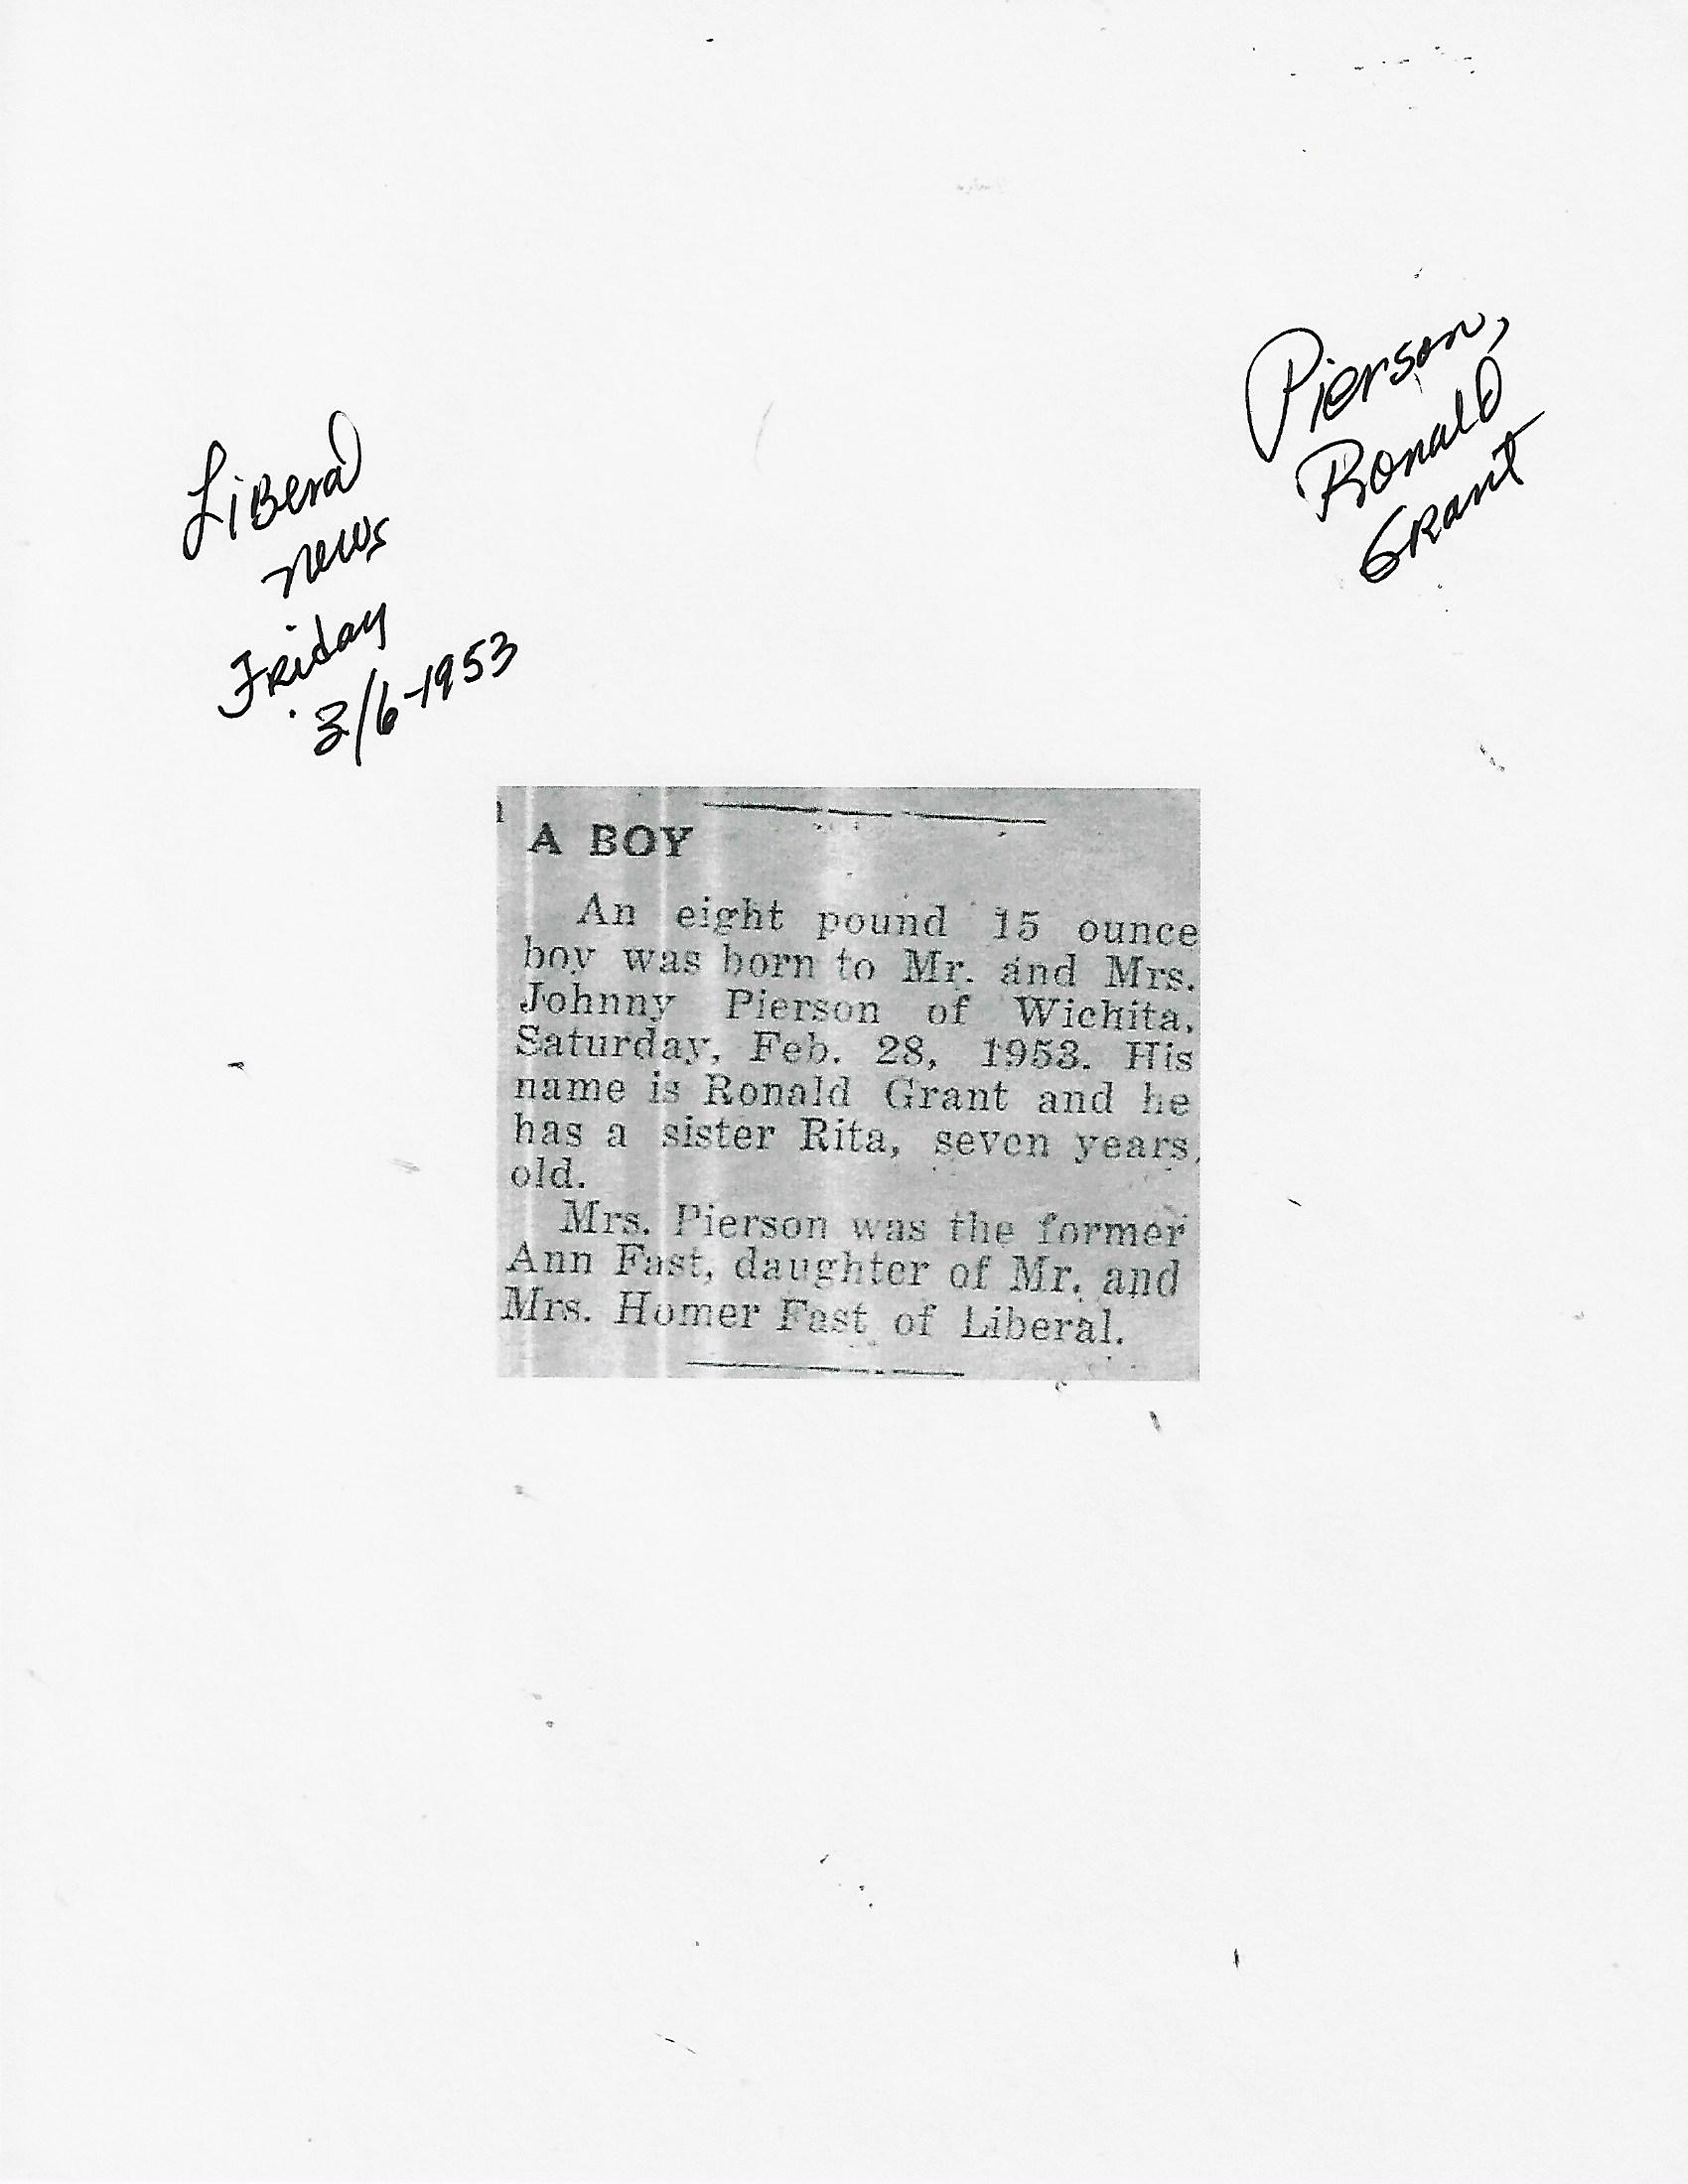 Pierson,
Ronald
Grant
Liberal
News
Friday
3/6-1953
A BOY
An eight pound 15 ounce
boy was born to Mr. and Mrs.
Johnny Pierson of Wichita,
Saturday, Feb. 28, 1953. His
name is Ronald Grant and he
has a sister Rita, seven years
old.
Mrs. Pierson was the former
Ann Fast, daughter of Mr. and
Mrs. Homer Fast of Liberal.